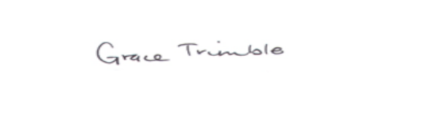 Grace Trimble